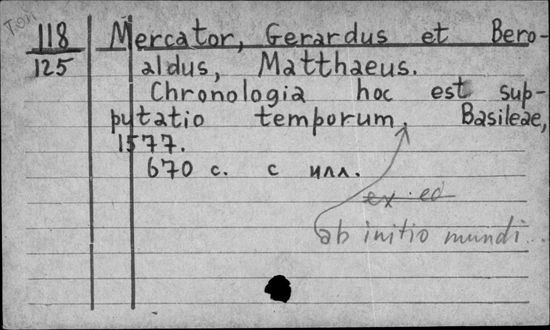 118
125
Mercator, Gerardus et Bero-
aldus, Matthaeus.
Chronologia hoc est sup-
putatio temporum. Basileae,
1577.
670 с. с илл.
ex ed
ab initio mundi...